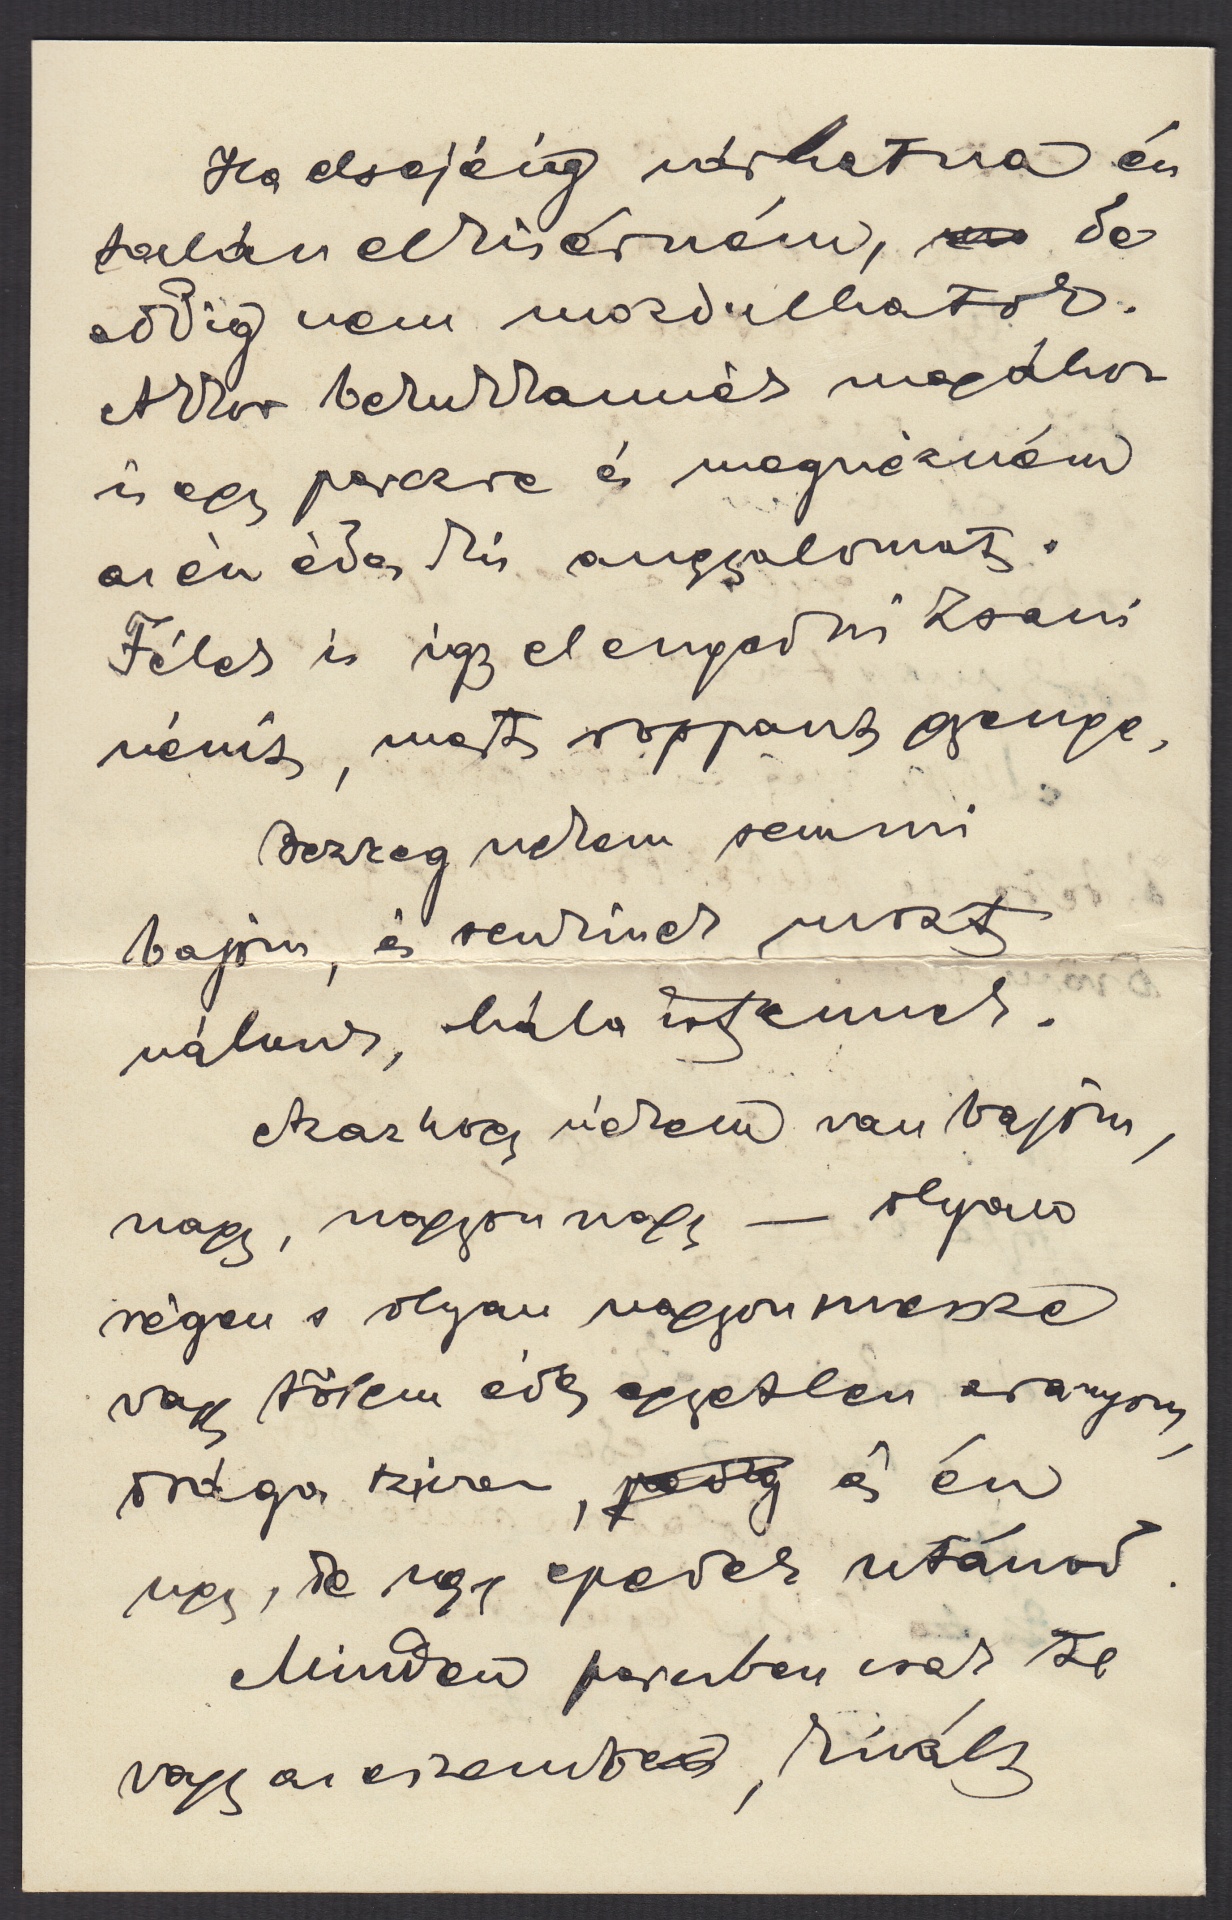 Ha elsejéig várhatna én
talán elkisérném, de
addig nem mozdulhatok.
Akkor berukkannék magához
is egy perczre és megnézném
az én édes kis angyalomat.
Félek is így elengedni Zsani
nénit, mert roppant gyenge.
Bezzeg nekem semmi
bajom, és senkinek most
nálunk, hála istennek.
Azaz hogy nékem van bajom,
nagy, nagyon nagy — olyan
régen s olyan nagyon messze
vagy tőlem édes egyetlen aranyom,
drága szivem, pedig és én
ugy, de ugy epedek utánod.
Minden perczben csak te
vagy az eszemben, kivált